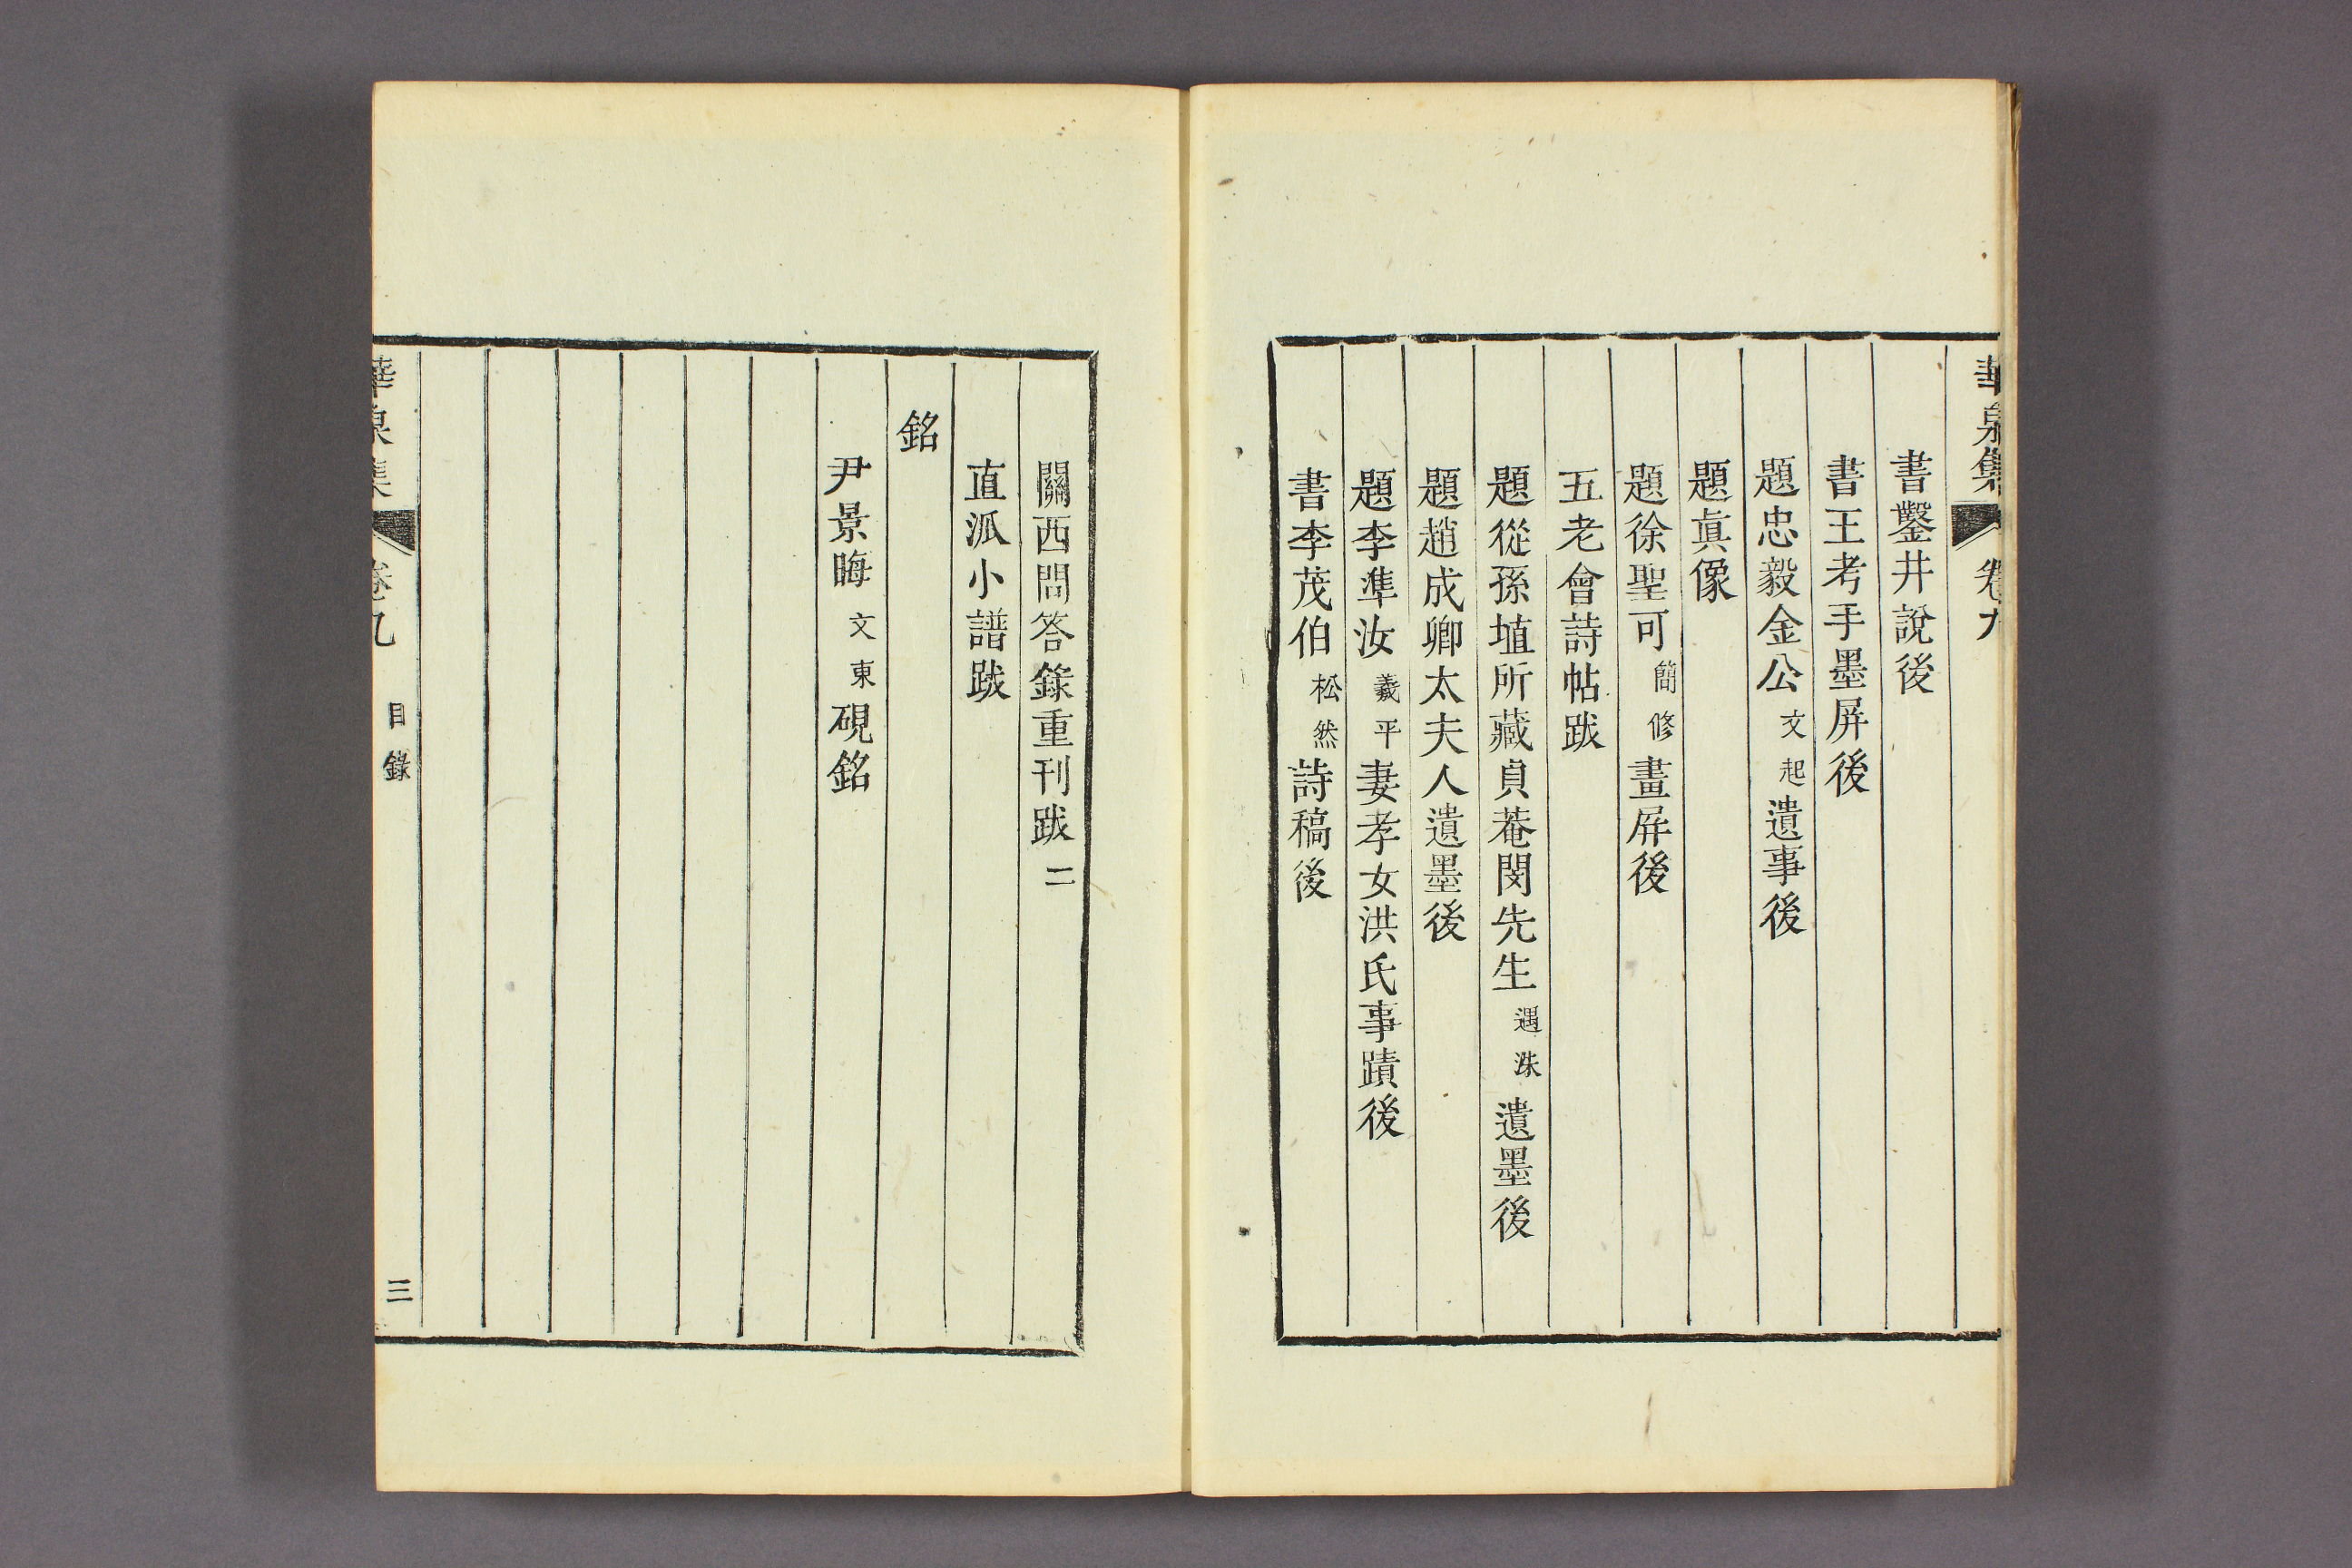 華泉集 卷九
書鑿井說後
書王考手墨屏後
題忠毅金公文起遺事後
題眞像
題徐聖可簡修畫屏後
五老會詩帖跋
題從孫埴所藏貞菴閔先生遇洙遺墨後
題趙成卿太夫人遺墨後
題李準汝羲平妻孝女洪氏事蹟後
書李茂伯松然詩稿後
關西問答錄重刊跋二
直派小譜跋
銘
尹景晦文東硯銘
華泉集 卷九 目錄 三